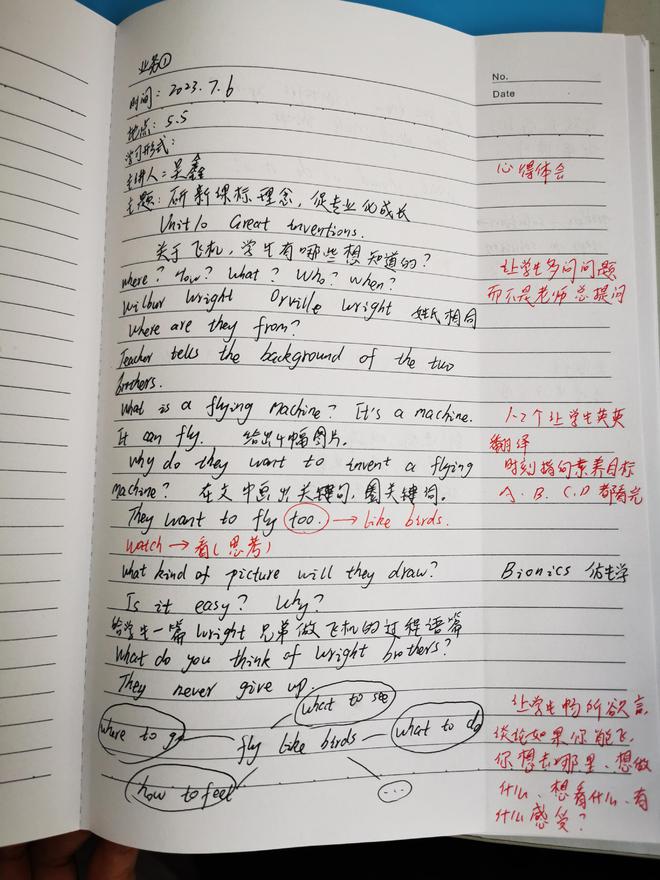 业务①
No.
Date
时间：2023.7.6
地点：5.5
学习形式：
主讲人：吴鑫
心得体会
主题：研新课标理念，促专业化成长
Unit10 Great inventions.
关于飞机，学生有哪些想知道的？
where? How? What? Who? when?
让学生多问问题
而不是老师总提问
Wilbur Wright Orville Wright 姓氏相同
Where are they from?
Teacher tells the background of the two
brothers.
What is a flying machine? It's a machine.
It can fly. 给出4幅图片。
1-2个让学生英英
翻译
Why do they want to invent a flying
machine? 在文中画出关键句，圈关键词。
时刻指向素养目标
A. B. C. D 都看完
They want to fly too. → like birds.
watch → 看（思考）
What kind of picture will they draw?
Bionics 仿生学
Is it easy? Why?
给学生一篇 Wright 兄弟做飞机的过程语篇
What do you think of Wright brothers?
They never give up
what to see
where to go
fly like birds
what to do
how to feel
...
让学生畅所欲言，
谈论如果你能飞，
你想去哪里、想做
什么、想看什么、有
什么感受？